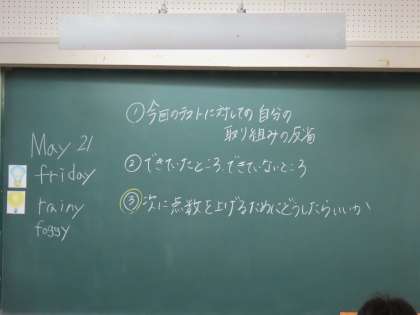 May 21
friday
rainy
foggy
① 今回のテストに対しての自分の
取り組みの反省
② できていたところ、できていないところ
③ 次に点数を上げるためにどうしたらいいか